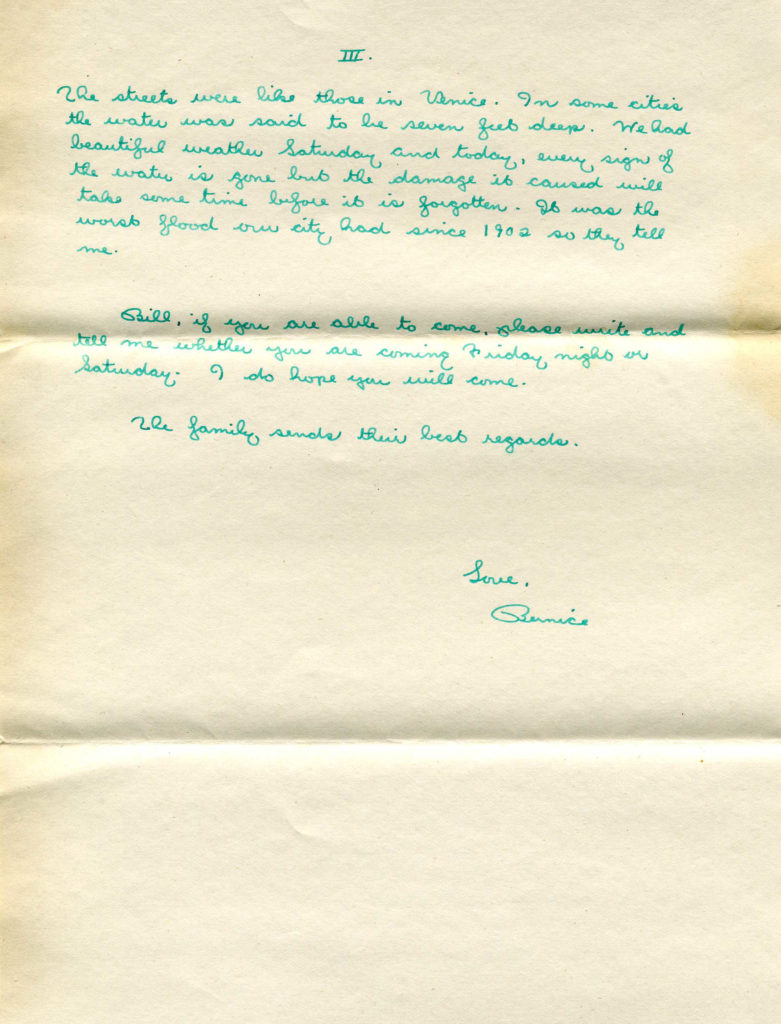 III.
The streets were like those in Venice. In some cities
the water was said to be seven feet deep. We had
beautiful weather Saturday and today, every sign of
the water is gone but the damage it caused will
take some time before it is forgotten. It was the
worst flood our city had since 1902 so they tell
me.
Bill, if you are able to come, please write and
tell me whether you are coming Friday night or
Saturday. I do hope you will come.
The family sends their best regards.
Love,
Bernice